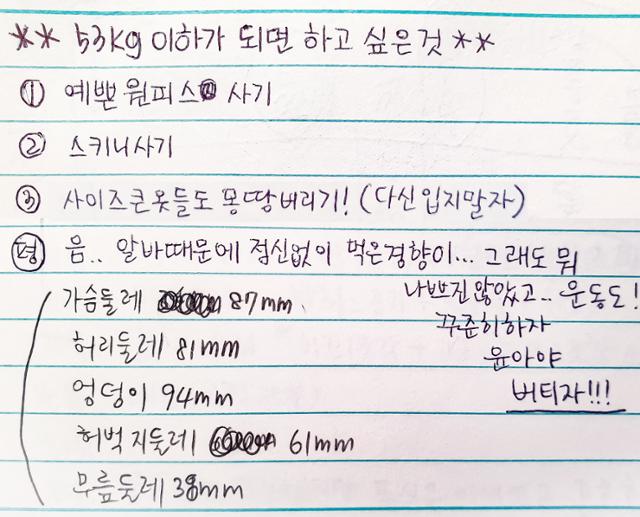 ** 53kg 이하가 되면 하고 싶은것 **
① 예쁜 원피스 사기
② 스키니사기
③ 사이즈큰옷들도 몽땅버리기! (다신입지말자)
평 음.. 알바때문에 점신없이 먹은경향이... 그래도 뭐
나쁘진않았고.. 운동도!
꾸준히하자
윤아야
버티자!!!
가슴둘레 87mm
허리둘레 81mm
엉덩이 94mm
허벅지둘레 61mm
무릎둘레 38mm